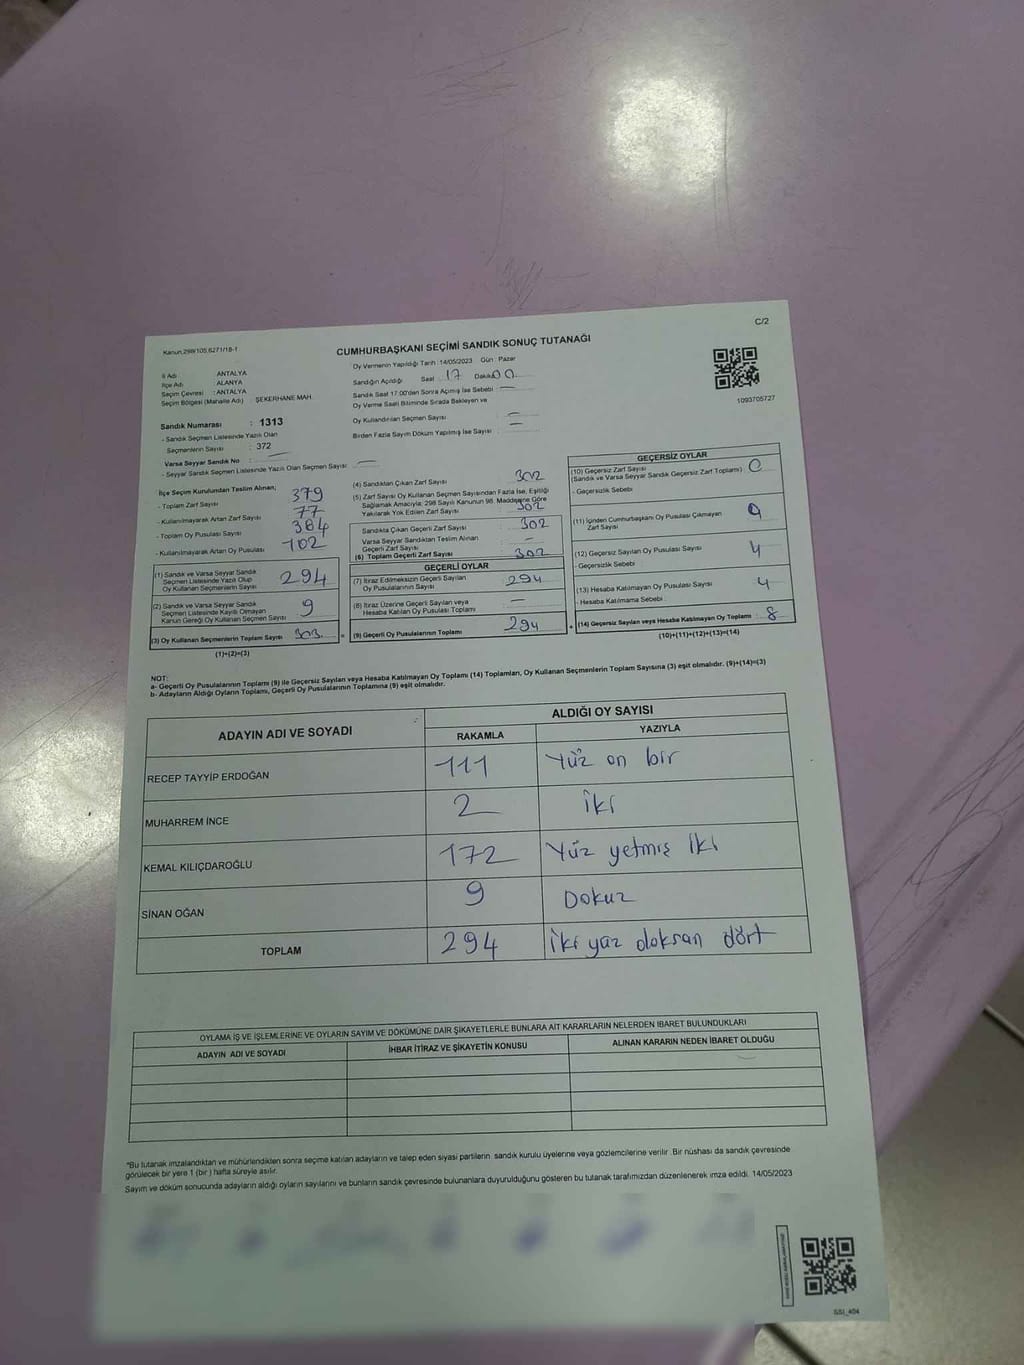 Kanun.298/105,6271/18-1
C/2
CUMHURBAŞKANI SEÇİMİ SANDIK SONUÇ TUTANAĞI
İl Adı : ANTALYA
İlçe Adı : ALANYA
Seçim Çevresi : ANTALYA
Seçim Bölgesi (Mahalle Adı) ŞEKERHANE MAH.
Oy Vermenin Yapıldığı Tarih :14/05/2023 Gün : Pazar
Sandığın Açıldığı Saat : 17 Dakika 00
Sandık Saat 17.00'den Sonra Açılmış İse Sebebi : —
Oy Verme Saati Bitiminde Sırada Bekleyen ve
Oy Kullandırılan Seçmen Sayısı : —
Birden Fazla Sayım Döküm Yapılmış İse Sayısı : —
1093705727
Sandık Numarası : 1313
- Sandık Seçmen Listesinde Yazılı Olan
Seçmenlerin Sayısı : 372
Varsa Seyyar Sandık No : —
- Seyyar Sandık Seçmen Listesinde Yazılı Olan Seçmen Sayısı : —
İlçe Seçim Kurulundan Teslim Alınan;
- Toplam Zarf Sayısı : 379
- Kullanılmayarak Artan Zarf Sayısı : 77
- Toplam Oy Pusulası Sayısı : 384
- Kullanılmayarak Artan Oy Pusulası : 102
(1) Sandık ve Varsa Seyyar Sandık
Seçmen Listesinde Yazılı Olup
Oy Kullanan Seçmenlerin Sayısı : 294
(2) Sandık ve Varsa Seyyar Sandık
Seçmen Listesinde Kayıtlı Olmayan
Kanun Gereği Oy Kullanan Seçmen Sayısı : 9
(3) Oy Kullanan Seçmenlerin Toplam Sayısı : 303
(1)+(2)=(3)
(4) Sandıktan Çıkan Zarf Sayısı : 302
(5) Zarf Sayısı Oy Kullanan Seçmen Sayısından Fazla İse, Eşitliği
Sağlamak Amacıyla; 298 Sayılı Kanunun 98. Maddesine Göre
Yakılarak Yok Edilen Zarf Sayısı : 302
Sandıkta Çıkan Geçerli Zarf Sayısı : 302
Varsa Seyyar Sandıktan Teslim Alınan
Geçerli Zarf Sayısı : —
(6) Toplam Geçerli Zarf Sayısı : 302
GEÇERLİ OYLAR
(7) İtiraz Edilmeksizin Geçerli Sayılan
Oy Pusulalarının Sayısı : 294
(8) İtiraz Üzerine Geçerli Sayılan veya
Hesaba Katılan Oy Pusulası Toplamı : —
= (9) Geçerli Oy Pusulalarının Toplamı : 294
GEÇERSİZ OYLAR
(10) Geçersiz Zarf Sayısı
(Sandık ve Varsa Seyyar Sandık Geçersiz Zarf Toplamı) : 0
- Geçersizlik Sebebi
(11) İçinden Cumhurbaşkanı Oy Pusulası Çıkmayan
Zarf Sayısı
(12) Geçersiz Sayılan Oy Pusulası Sayısı : 4
- Geçersizlik Sebebi
(13) Hesaba Katılmayan Oy Pusulası Sayısı : 4
- Hesaba Katılmama Sebebi :
+ (14) Geçersiz Sayılan veya Hesaba Katılmayan Oy Toplamı : 8
(10)+(11)+(12)+(13)=(14)
NOT:
a- Geçerli Oy Pusulalarının Toplamı (9) ile Geçersiz Sayılan veya Hesaba Katılmayan Oy Toplamı (14) Toplamları, Oy Kullanan Seçmenlerin Toplam Sayısına (3) eşit olmalıdır. (9)+(14)=(3)
b- Adayların Aldığı Oyların Toplamı, Geçerli Oy Pusulalarının Toplamına (9) eşit olmalıdır.
ADAYIN ADI VE SOYADI ALDIĞI OY SAYISI
RAKAMLA YAZIYLA
RECEP TAYYİP ERDOĞAN 111 Yüz on bir
MUHARREM İNCE 2 iki
KEMAL KILIÇDAROĞLU 172 Yüz yetmiş iki
SİNAN OĞAN 9 Dokuz
TOPLAM 294 İki yüz doksan dört
OYLAMA İŞ VE İŞLEMLERİNE VE OYLARIN SAYIM VE DÖKÜMÜNE DAİR ŞİKAYETLERLE BUNLARA AİT KARARLARIN NELERDEN İBARET BULUNDUKLARI
ADAYIN ADI VE SOYADI İHBAR İTİRAZ VE ŞİKAYETİN KONUSU ALINAN KARARIN NEDEN İBARET OLDUĞU
"Bu tutanak imzalandıktan ve mühürlendikten sonra seçime katılan adayların ve talep eden siyasi partilerin sandık kurulu üyelerine veya gözlemcilerine verilir. Bir nüshası da sandık çevresinde
görülecek bir yere 1 (bir ) hafta süreyle asılır.
Sayım ve döküm sonucunda adayların aldığı oyların sayılarını ve bunların sandık çevresinde bulunanlara duyurulduğunu gösteren bu tutanak tarafımızdan düzenlenerek imza edildi. 14/05/2023
SSI_404